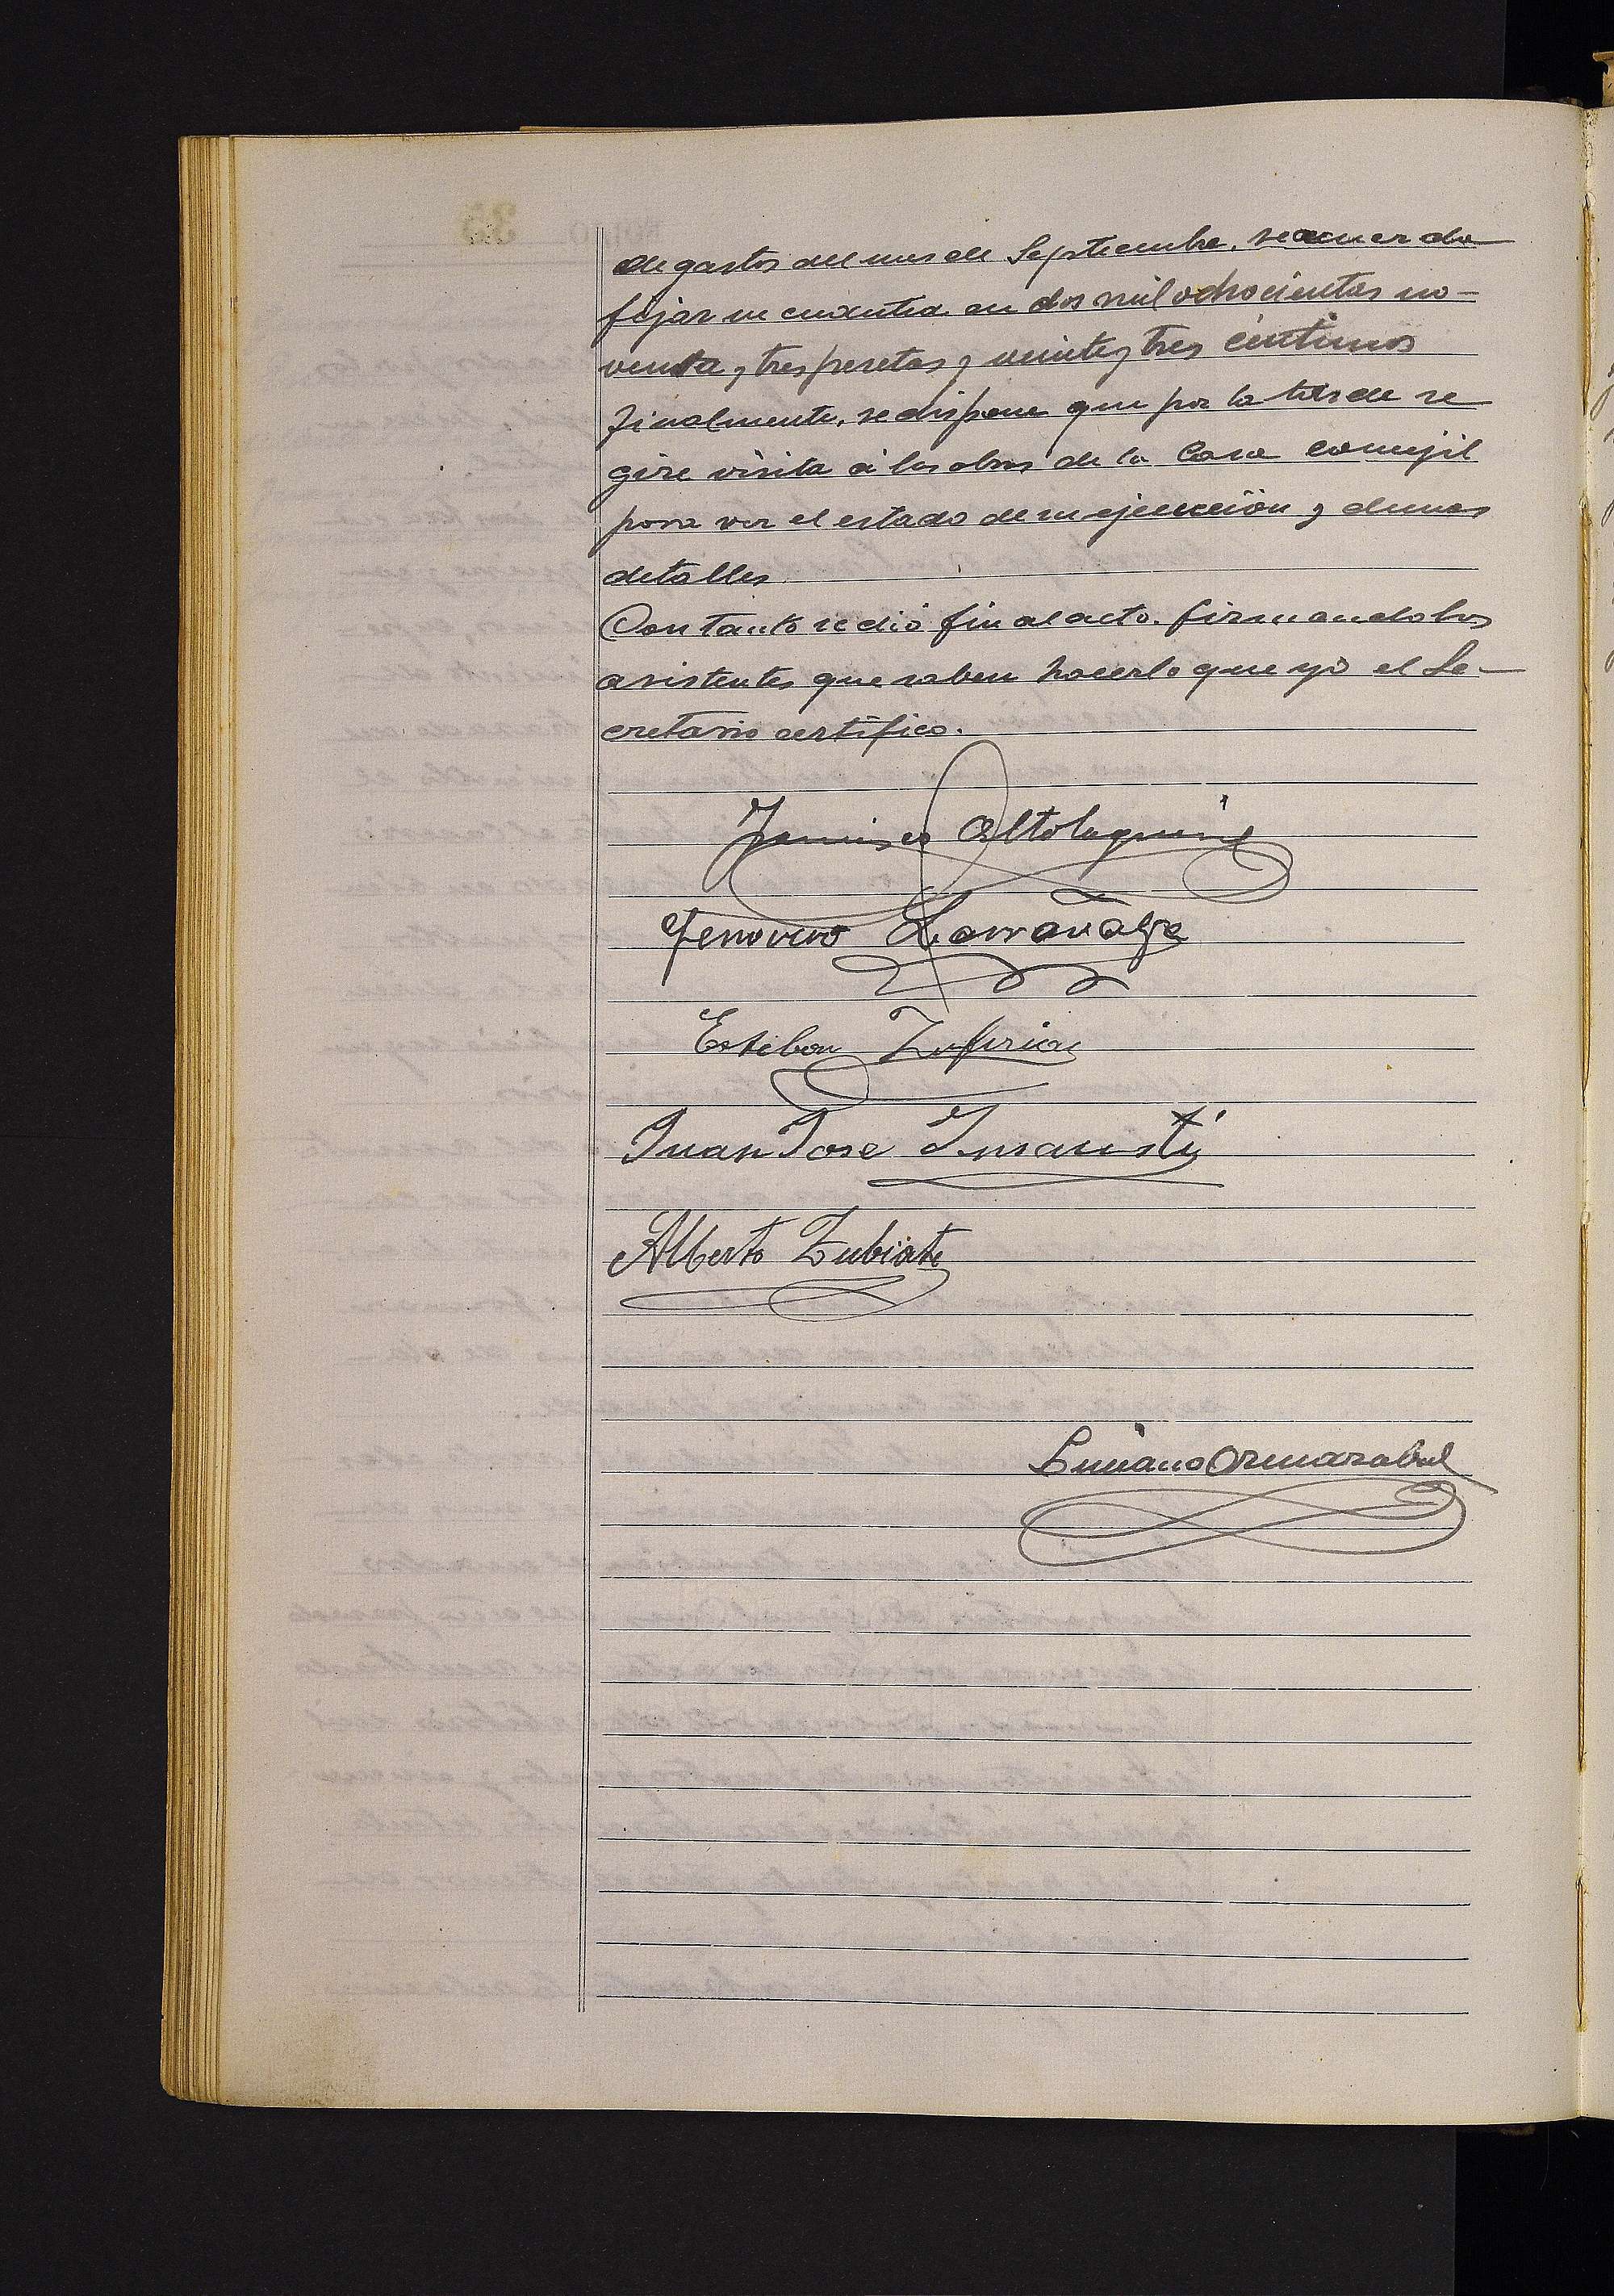 de gastos del mes de Septiembre, se acuerda
fijar su cuantia en dos mil ochocientas no-
venta y tres pesetas y veinte y tres centimos
Finalmente, se dispone que por la tarde se
gire visita á las obras de la Casa concejil
para ver el estado de su ejecución y demas
detalles
Con tanto se dió fin al acto. firmando los
asistentes que saben hacerlo que yo el Se-
cretario certifico.
Francisco Altolaguirre
Genoveno Larrañaga
Esteban Zufiria
Juan Jose Insausti
Alberto Zubiate
Luciano Ormazabal